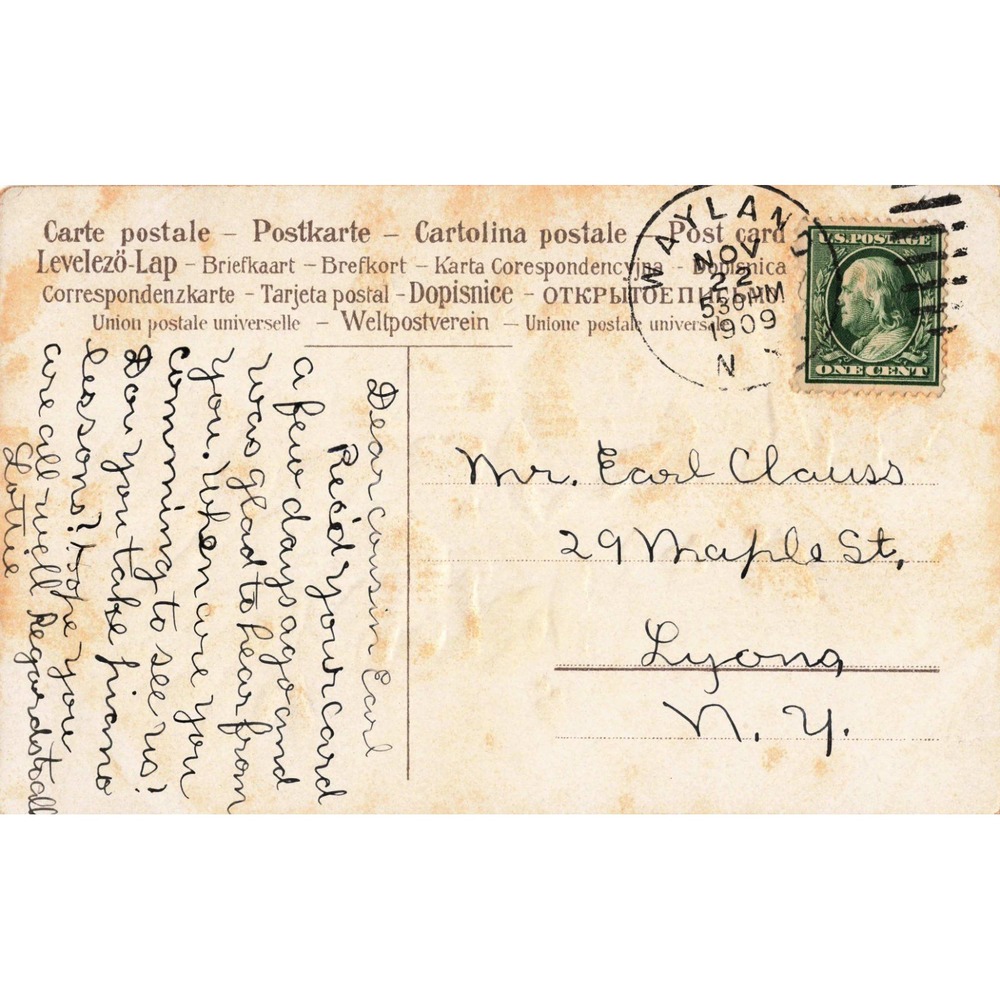 Carte postale – Postkarte – Cartolina postale – Post card
Levelező-Lap – Briefkaart – Brefkort – Karta Corespondencyjna – Dopisnica
Correspondenzkarte – Tarjeta postal – Dopisnice – ОТКРЫТОЕ
Union postale universelle – Weltpostverein – Unione postale universale
WAYLAND
NOV
22
530PM
1909
N
U.S.POSTAGE
ONE CENT
Dear cousin Earl
Rec'd your card
a few days ago and
was glad to hear from
you. When are you
comming to see us?
Don you take piano
lessons? Hope you
are all well Regards to all
Lottie
Mr. Earl Clauss
29 Maple St,
Lyons
N. Y.